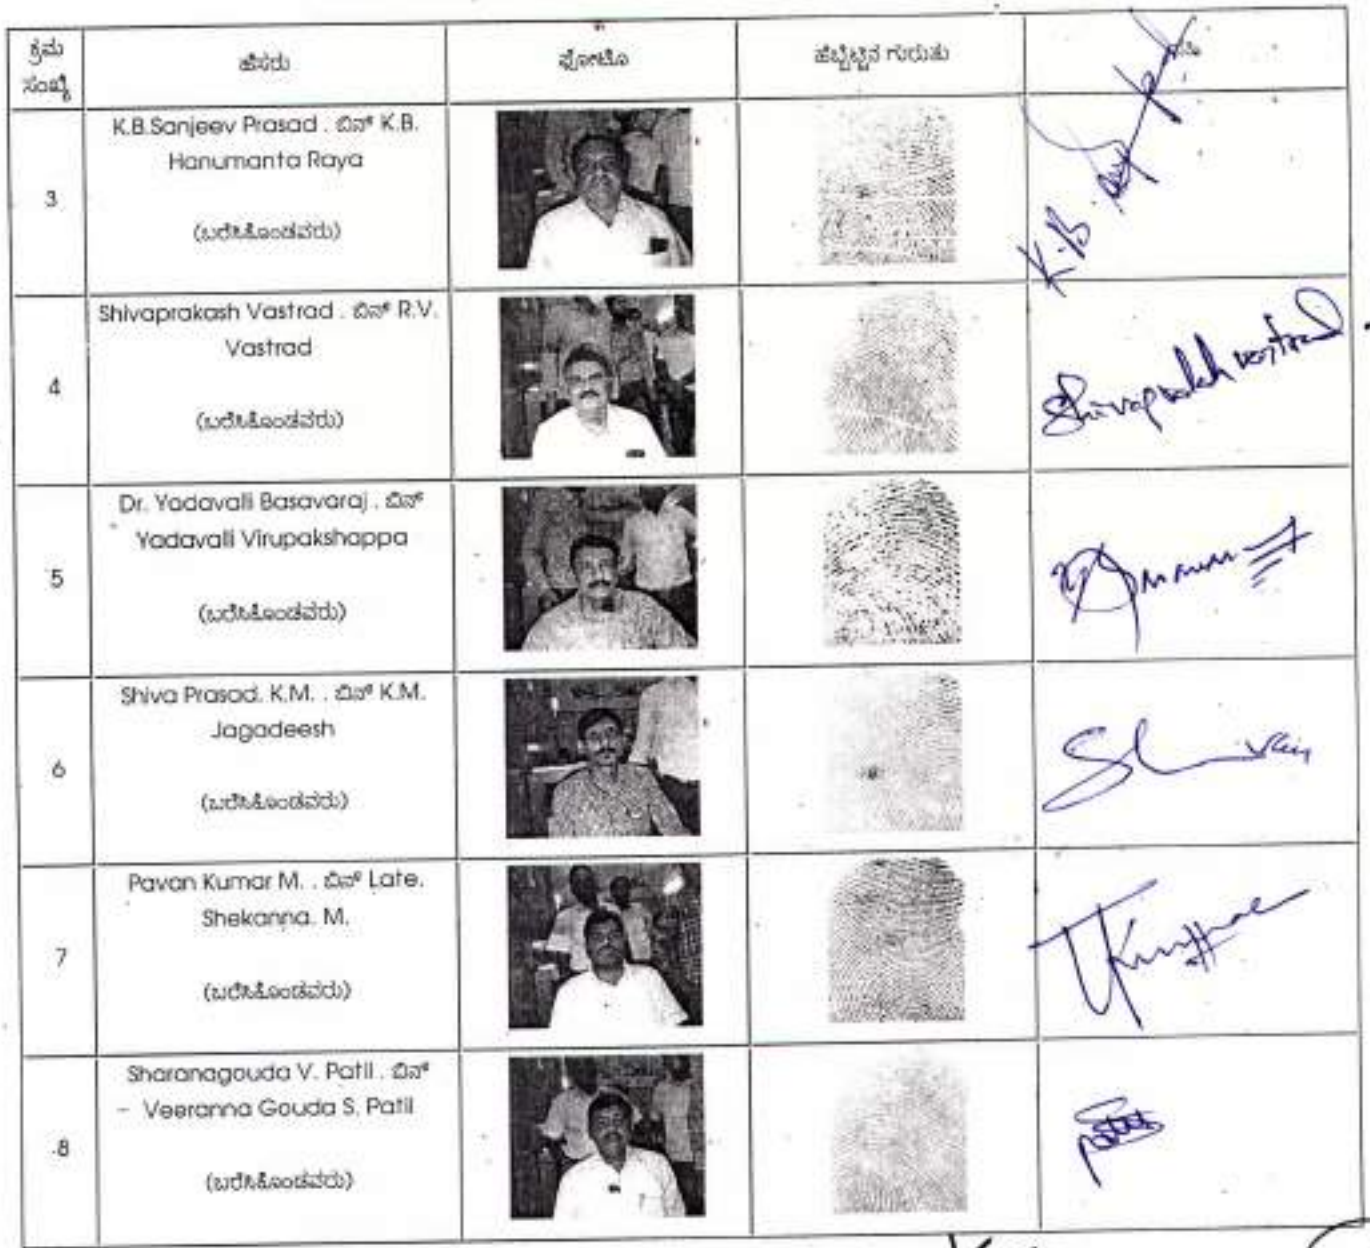 ಕ್ರಮ ಸಂಖ್ಯೆ ಹೆಸರು ಫೋಟೊ ಹೆಬ್ಬೆಟ್ಟಿನ ಗುರುತು ಸಹಿ
3 K.B.Sanjeev Prasad . ಬಿನ್ K.B.
Hanumanta Raya
(ಬರೆಸಿಕೊಂಡವರು)
K.B.
4 Shivaprakash Vastrad . ಬಿನ್ R.V.
Vastrad
(ಬರೆಸಿಕೊಂಡವರು)
Shivaprakash Vastrad.
5 Dr. Yadavalli Basavaraj . ಬಿನ್
Yadavalli Virupakshappa
(ಬರೆಸಿಕೊಂಡವರು)
6 Shiva Prasad. K.M. . ಬಿನ್ K.M.
Jagadeesh
(ಬರೆಸಿಕೊಂಡವರು)
7 Pavan Kumar M. . ಬಿನ್ Late.
Shekanna. M.
(ಬರೆಸಿಕೊಂಡವರು)
8 Sharanagouda V. Patil . ಬಿನ್
– Veeranna Gouda S. Patil
(ಬರೆಸಿಕೊಂಡವರು)